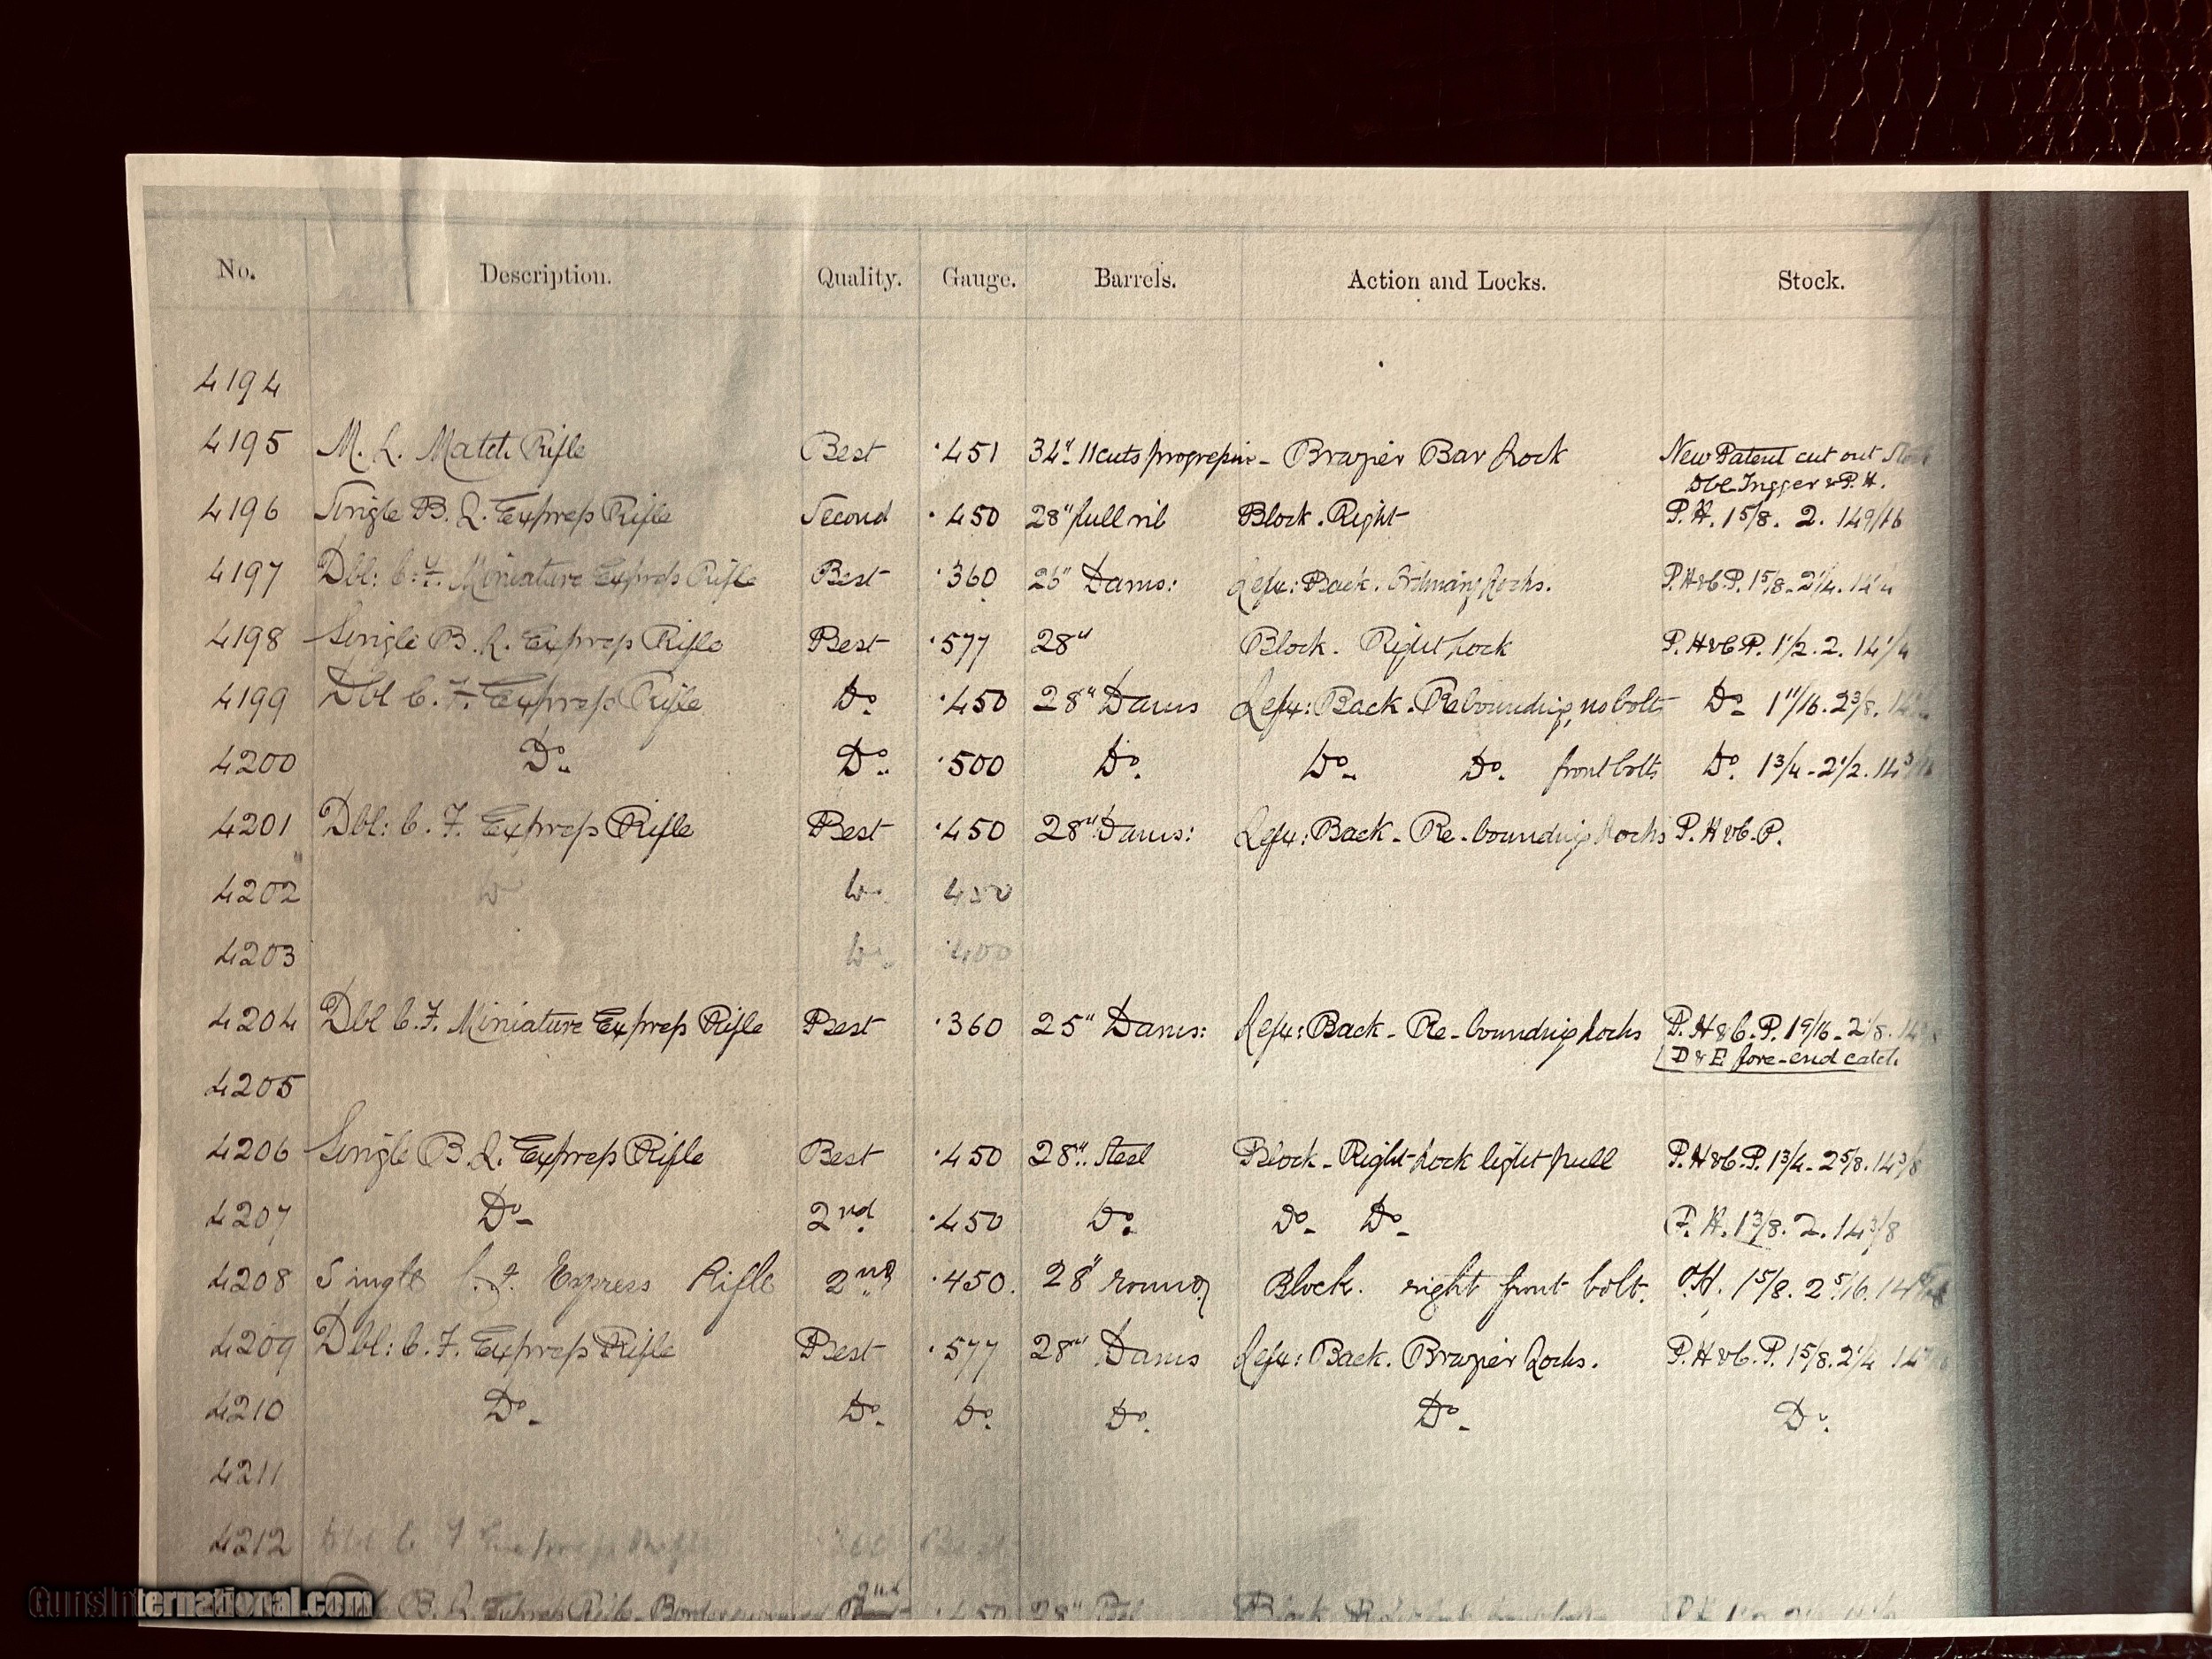 No. Description. Quality. Gauge. Barrels. Action and Locks. Stock.
4194
4195 M. L. Match Rifle Best ·451 34" 11 cuts progressive - Brazier Bar Lock New Patent cut out
Dbl Trigger & P. H.
4196 Single B. L. Express Rifle Second ·450 28" full rib Block. Right P. H. 1 5/8. 2. 14 9/16
4197 Dbl: C. F. Miniature Express Rifle Best ·360 26" Dams: Lefx: Back. Ordinary Locks. P. H & C. P. 1 5/8. 2 1/4. 14 1/4
4198 Single B. L. Express Rifle Best ·577 28" Block. Right Lock P. H & C. P. 1 1/2. 2. 14 1/4
4199 Dbl C. F. Express Rifle Do. ·450 28" Dams Lefx: Back. Rebounding, no bolts Do. 1 11/16. 2 3/8.
4200 Do. Do. ·500 Do. Do. Do. front bolts Do. 1 3/4 - 2 1/2.
4201 Dbl: C. F. Express Rifle Best ·450 28" Dams: Lefx: Back - Re-bounding Locks P. H & C. P.
4202 Do. 450
4203 Do. ·400
4204 Dbl C. F. Miniature Express Rifle Best ·360 25" Dams: Lefx: Back - Re-bounding Locks P. H & C. P. 1 9/16 - 2 1/8.
D & E fore-end catch
4205
4206 Single B. L. Express Rifle Best ·450 28" Steel Block - Right Lock light pull P. H & C. P. 1 3/4 - 2 5/8. 14 3/8
4207 Do. 2nd ·450 Do. Do. Do. P. H. 1 3/8. 2. 14 3/8
4208 Single C. F. Express Rifle 2nd ·450. 28" round Block. right front bolt. P. H. 1 5/8. 2 5/16.
4209 Dbl: C. F. Express Rifle Best ·577 28" Dams Lefx: Back. Brazier Locks. P. H & C. P. 1 5/8. 2 1/4
4210 Do. Do. Do. Do. Do. Do.
4211
4212 Dbl C. F. Express Rifle 360 Best
B. L. Express Rifle 2nd ·450 28" Block
GunsInternational.com